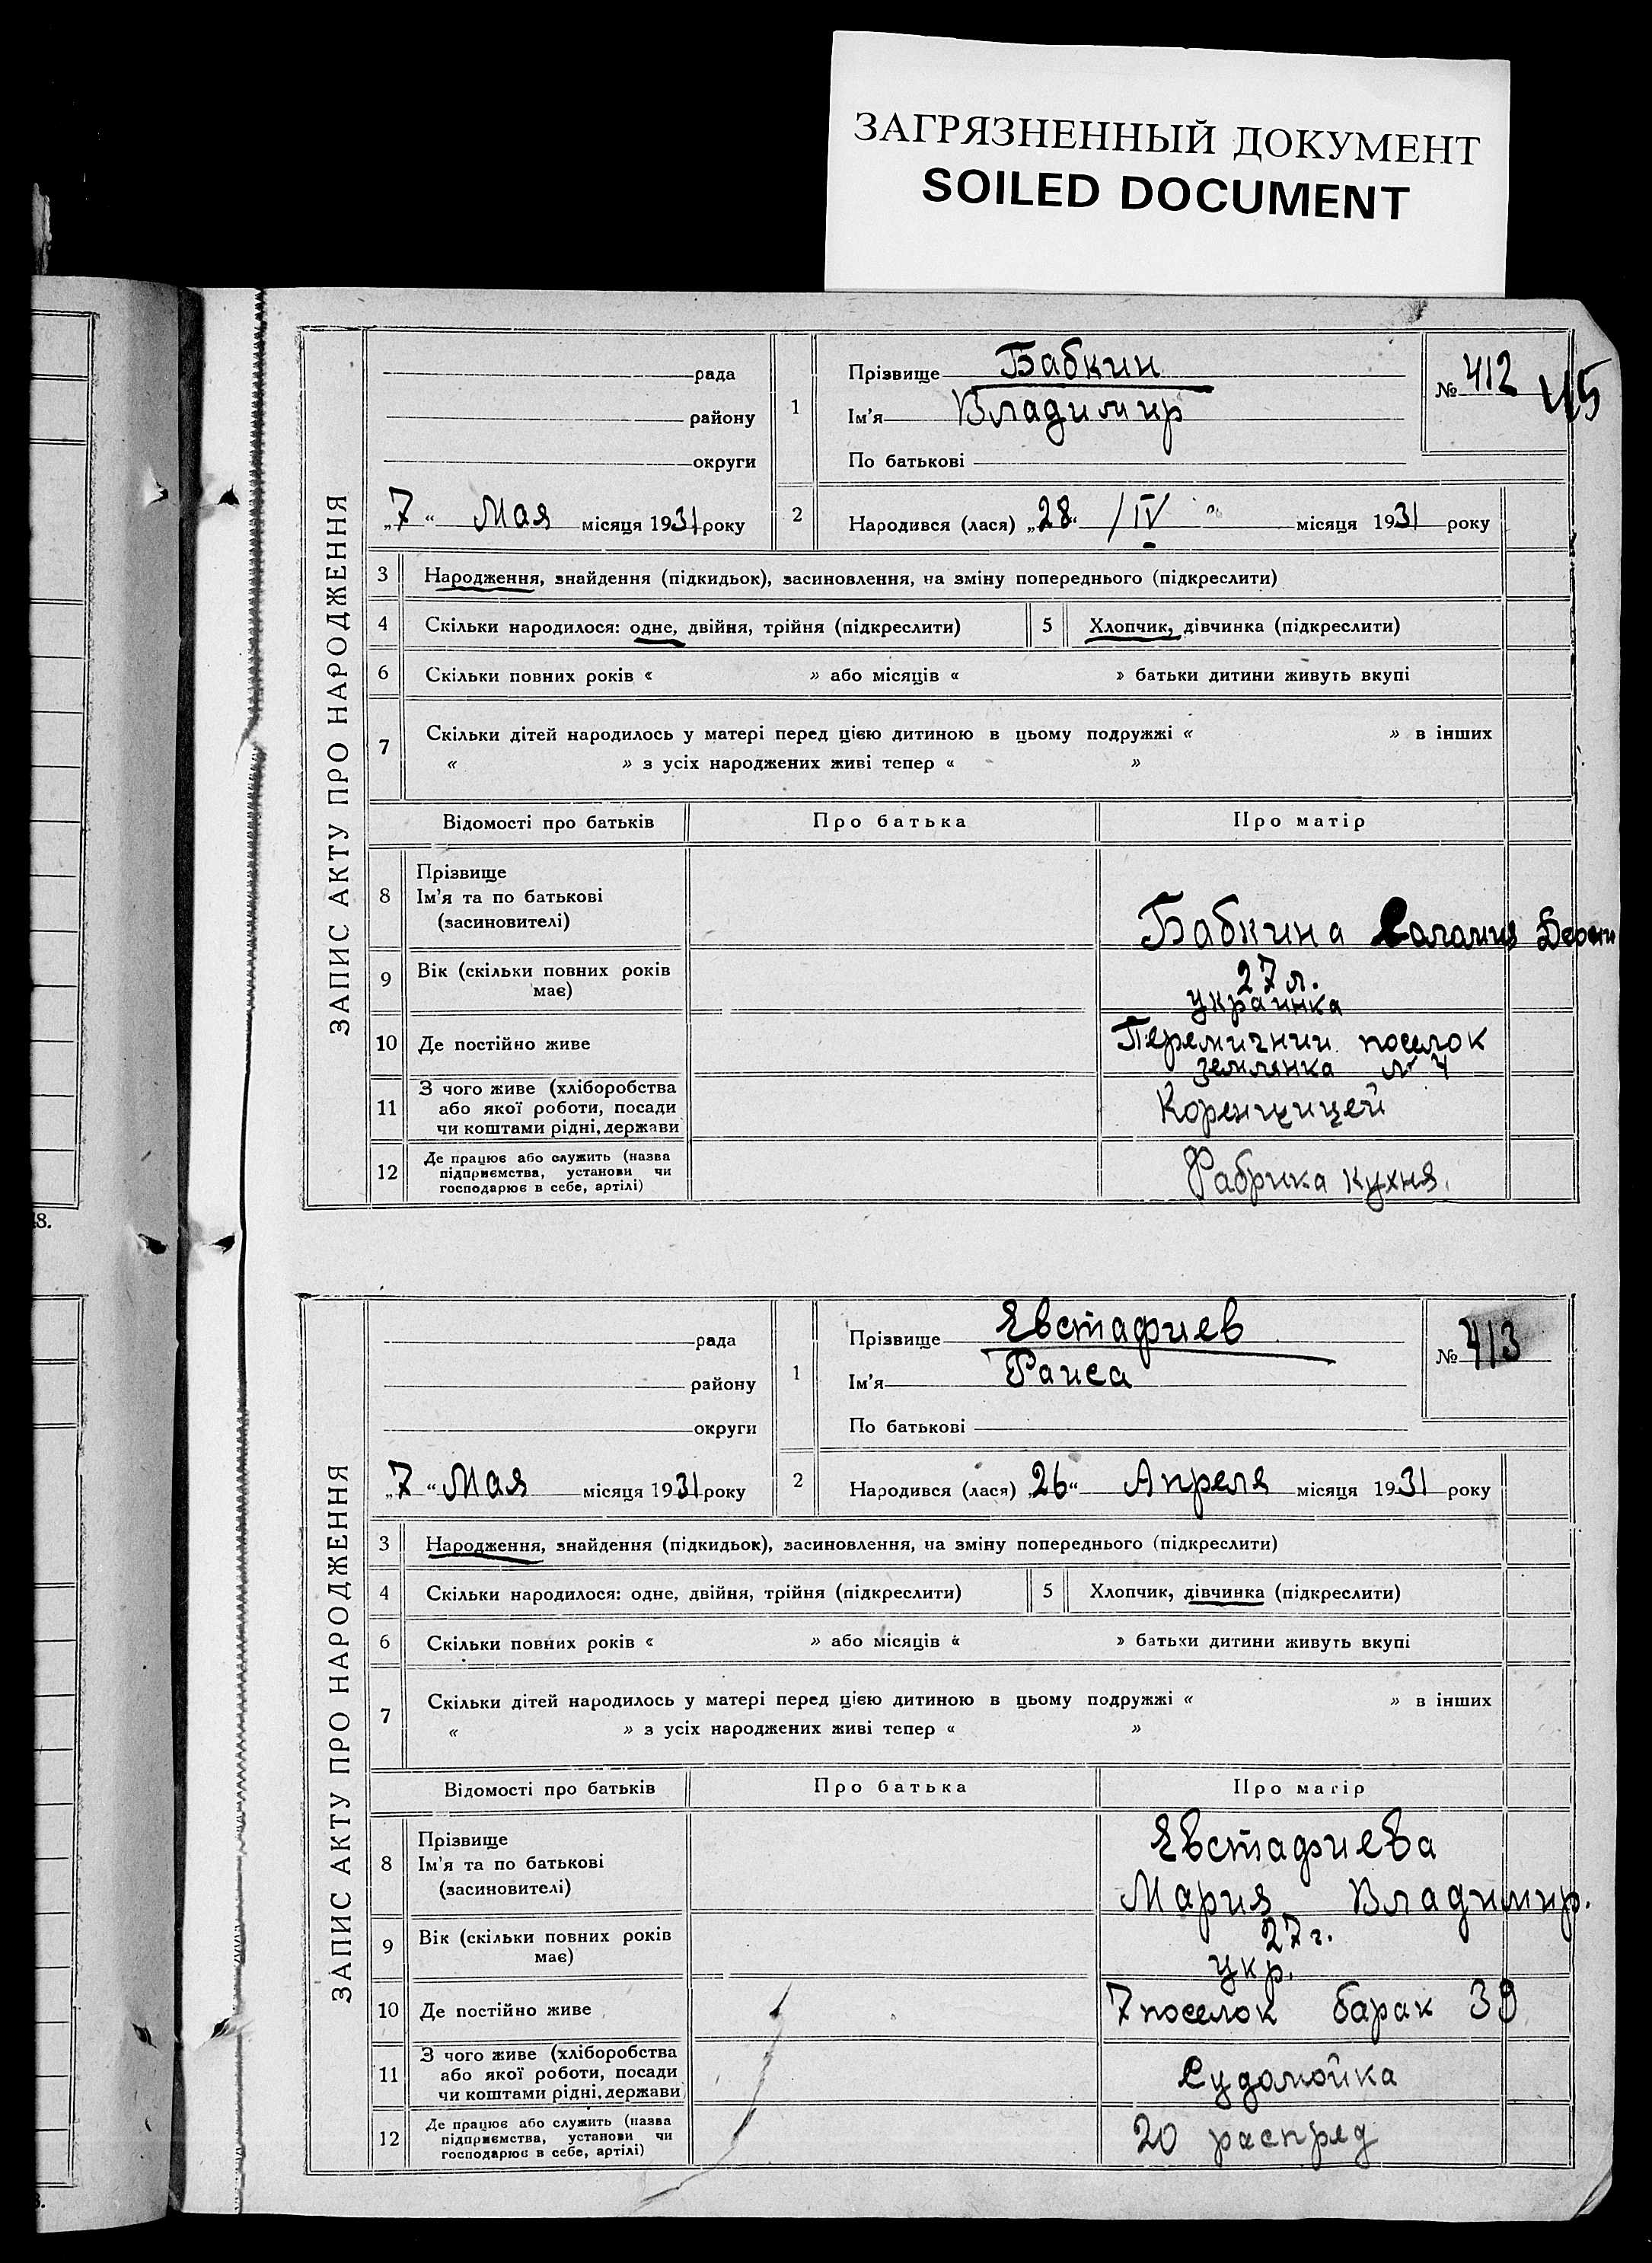 ЗАГРЯЗНЕННЫЙ ДОКУМЕНТ
SOILED DOCUMENT
45
ЗАПИС АКТУ ПРО НАРОДЖЕННЯ
рада
району
округи
„7“ Мая місяця 1931 року
1 Прізвище Бабкин
Ім'я Владимир
По батькові
№ 412
2 Народився (лася) „28“ /IV місяця 1931 року
3 Народження, знайдення (підкидьок), засиновлення, на зміну попереднього (підкреслити)
4 Скільки народилося: одне, двійня, трійня (підкреслити) 5 Хлопчик, дівчинка (підкреслити)
6 Скільки повних років « » або місяців « » батьки дитини живуть вкупі
7 Скільки дітей народилось у матері перед цією дитиною в цьому подружжі « » в інших
« » з усіх народжених живі тепер « »
Відомості про батьків Про батька Про матір
8 Прізвище
Ім'я та по батькові
(засиновителі)
Бабкина
9 Вік (скільки повних років
має)
27 л.
украинка
10 Де постійно живе
поселок
землянка № 4
11 З чого живе (хліборобства
або якої роботи, посади
чи коштами рідні, держави
Коренщицей
12 Де працює або служить (назва
підприємства, установи чи
господарює в себе, артілі)
Фабрика кухня.
8.
ЗАПИС АКТУ ПРО НАРОДЖЕННЯ
рада
району
округи
„7“ Мая місяця 1931 року
1 Прізвище Евстафиев
Ім'я Раиса
По батькові
№ 413
2 Народився (лася) „26“ Апреля місяця 1931 року
3 Народження, знайдення (підкидьок), засиновлення, на зміну попереднього (підкреслити)
4 Скільки народилося: одне, двійня, трійня (підкреслити) 5 Хлопчик, дівчинка (підкреслити)
6 Скільки повних років « » або місяців « » батьки дитини живуть вкупі
7 Скільки дітей народилось у матері перед цією дитиною в цьому подружжі « » в інших
« » з усіх народжених живі тепер « »
Відомості про батьків Про батька Про матір
8 Прізвище
Ім'я та по батькові
(засиновителі)
Евстафиева
Мария Владимир.
9 Вік (скільки повних років
має)
27 г.
укр.
10 Де постійно живе
7 поселок барак 39
11 З чого живе (хліборобства
або якої роботи, посади
чи коштами рідні, держави)
Судомойка
12 Де працює або служить (назва
підприємства, установи чи
господарює в себе, артілі)
20 распред